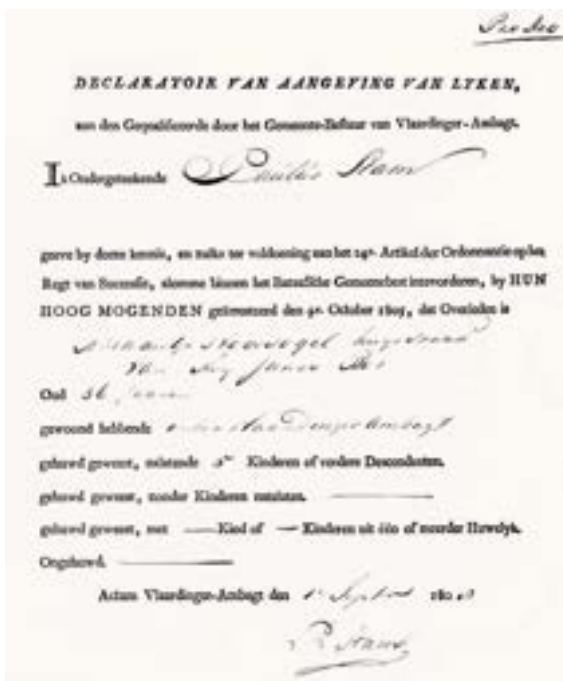 Pro Deo
DECLARATOIR VAN AANGEVING VAN LYKEN,
aan den Gequalificeerde door het Gemeente-Bestuur van Vlaardinger-Ambagt.
Ik Ondergeteekende Paulus Stam
geeve by deeze kennis, en zulks ter voldoening aan het 14e. Artikel der Ordonnantie op het
Regt van Successie, alomme binnen het Bataafsche Gemeenebest intevorderen, by HUN
HOOG MOGENDEN gearresteerd den 4e. October 1805, dat Overleden is
Van Jan
Oud 56 Jaaren
gewoond hebbende Vlaardinger Ambagt
gehuwd geweest, nalatende Kinderen of verdere Descendenten.
gehuwd geweest, zonder Kinderen natelaten.
gehuwd geweest, met Kind of Kinderen uit één of meerder Huwelyk.
Ongehuwd.
Actum Vlaardinger-Ambagt den 180
P. Stam